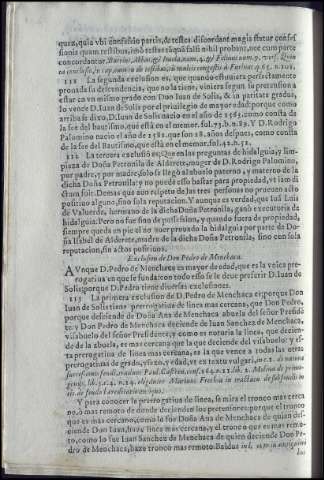 quẽ, quia vbi confessio partis, & testes discordant magis statur confes
sioni quam testibus, imò testes tales falsi nihil probant, nec cum parte
concordantur,
111 La segunda exclusion es, que quando estuuiera perfectamente
prouada su descendencia, que no la tiene, viniera segun la pretension a
estar en vn mismo grado con Don Iuan de Solis, & in paritate gradus,
lo vence D. Iuan de Solis por el priuilegio de mayor edad: porque como
arriba se dixo, D. Iuan de Solis nacio en el año de 1563, como consta de
la fee del bautismo, que està en el memor. fol. 73. b. n. 89. Y D. Rodrigo
Palomino nacio el año de 1581. que son 18. años despues, como consta
de la fee del Bautismo, que està en el memor. fol. 42. n. 52.
112 La tercera exclusiõ es: Que en las preguntas de hidalguia, y lim-
pieza de Doña Petronila de Alderete, muger de D. Rodrigo Palomino,
por padre, y por madre, solo se llegò al abuelo paterno, y materno de la
dicha Doña Petronila: y no puede esto bastar para propiedad, vt iam di
ctum fuit. Demas que aun respeto de las tres personas no prueuan acto
positiuo alguno, sino sola reputacion. Y aunque es verdad, que Iuã Luis
de Valuerde, hermano de la dicha Doña Petronila, ganò executoria de
hidalguia: Pero no fue sino de possession, y quando fuera de propiedad,
siempre queda en pie el no auer prouado la hidalguia por parte de Do-
ña Isabel de Alderete, madre de la dicha Doña Petronila, sino con sola
reputacion, sin actos positiuos.
Exclusion de Don Pedro de Menchaca.
AVnque D. Pedro de Menchaca es mayor de edad, que es la vnica pre-
rogatiua en que se fundaren todo esso se le deue preferir D. Iuan de
Solis: porque D. Pedro tiene diuersas exclusiones.
113 La primera exclusion de D. Pedro de Menchaca es porque Don
Iuan de Solis tiene prerrogatiua de linea mas cercana, que Don Pedro,
porque desciende de Doña Ana de Menchaca abuela del señor Presidẽ
te: y Don Pedro de Menchaca deciende de Iuan Sanchez de Menchaca,
visabuelo del señor Presidente, y como es notorio la linea, que decien-
de de la abuela, es mas cercana que la que deciende del visabuelo: y es-
ta prerogatiua de linea mas cercana, es la que vence a todas las otras
prerogatiuas de grado, sexo, y edad, vt ex textu vulgari,
Y para conocer la prerogatiua de linea, se mira el tronco mas cerca
no, ò mas remoto de donde decienden los pretensores: porque el tronco
que es mas cercano, como lo fue Doña Ana de Menchaca de quien de-
ciende Don Iuan, haze linea mas cercana, y el tronco que es mas remo-
to, como lo fue Iuan Sanchez de Menchaca de quien deciende Don Pe-
dro de Menchaca, haze tronco mas remoto. Baldus